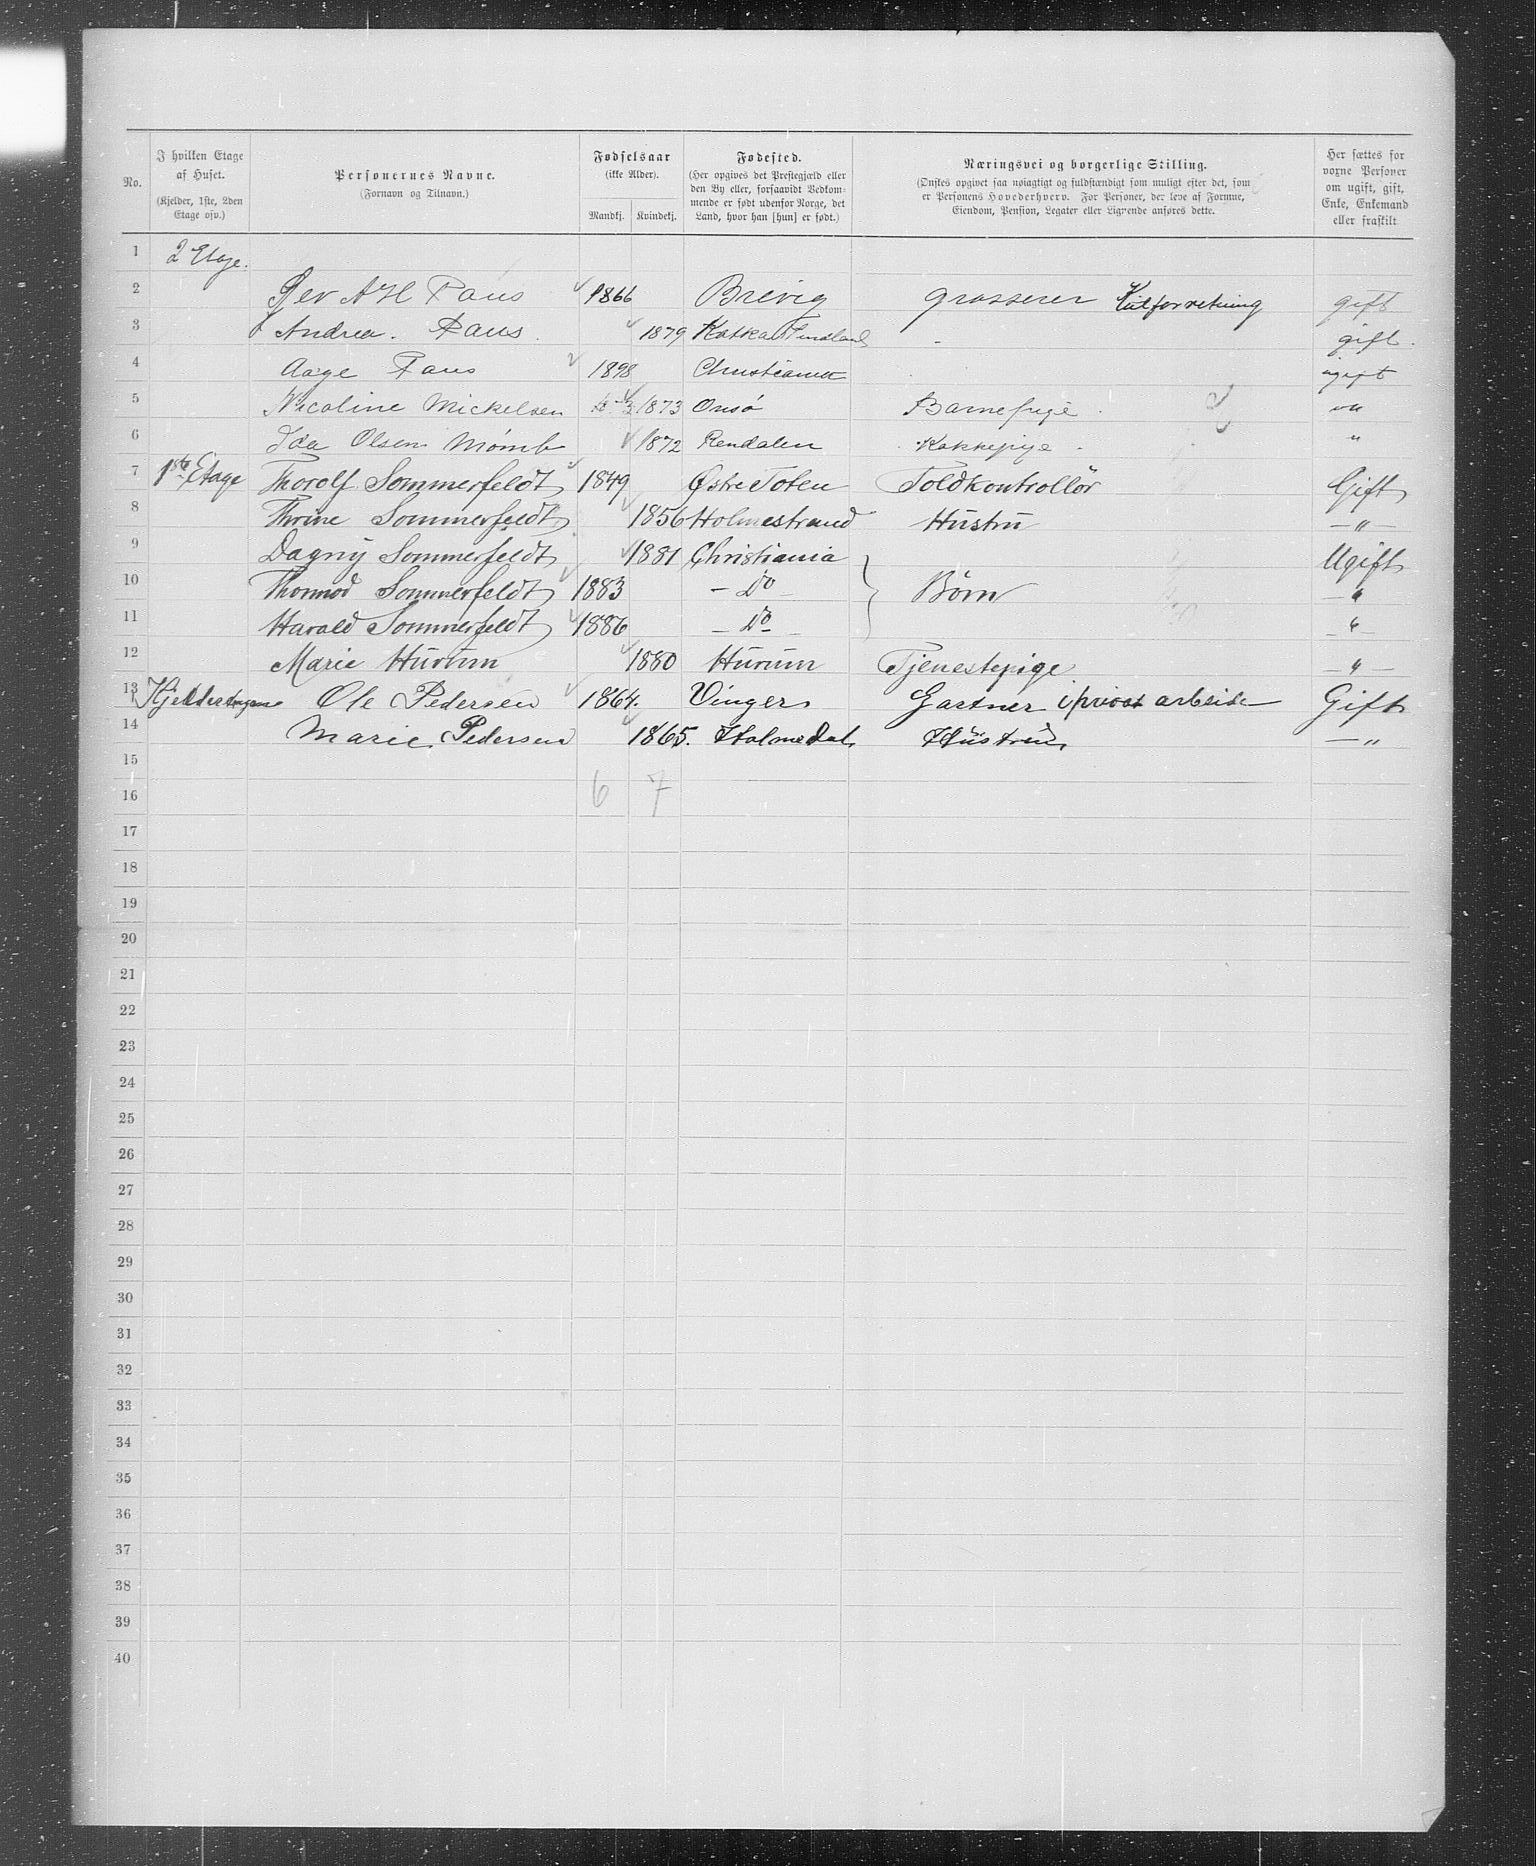 No.
I hvilken Etage af Huset. (Kjelder, 1ste, 2den Etage osv.)
Personernes Navne. (Fornavn og Tilnavn.)
Fødselsaar (ikke Alder). Mandkj. Kvindekj.
Fødested. (Her opgives det Prestegjæld eller den By eller, forsaavidt Vedkommende er født udenfor Norge, det Land, hvor han [hun] er født.)
Næringsvei og borgerlige Stilling. (Ønskes opgivet saa nøiagtigt og fuldstændigt som muligt efter det, som er Personens Hovederhverv. For Personer, der leve af Formue, Eiendom, Pension, Legater eller Lignende anføres dette.
Her sættes for voxne Personer om ugift, gift, Enke, Enkemand eller fraskilt
1 2 Etage.
2 A H Paus 1866 Brevig grosserer Kulforretning gift
3 Andrea. Paus 1879 gift.
4 Aage Paus 1898 Christiania ugift
5 Nicoline Mickelsen 1873 Onsø Barnepige
6 Ida Olsen 1872 Rendalen Kokkepige "
7 1ste Etage Thorolf Sommerfeldt 1849 Østre Toten Toldkontrollör Gift
8 Thrine Sommerfeldt 1856 Holmestrand Hustru — " —
9 Dagny Sommerfeldt 1881 Christiania Ugift
10 Thormod Sommerfeldt 1883 — Do — } Børn — " —
11 Harald Sommerfeldt 1886 — Do — — " —
12 Marie Hurum 1880 Hurum Tjenestepige — " —
13 Ole Pedersen 1864. Vinger Gartner i privat arbeide Gift
14 Marie Pedersen 1865. Holmedal Hustru — "
15
16 6 7
17
18
19
20
21
22
23
24
25
26
27
28
29
30
31
32
33
34
35
36
37
38
39
40